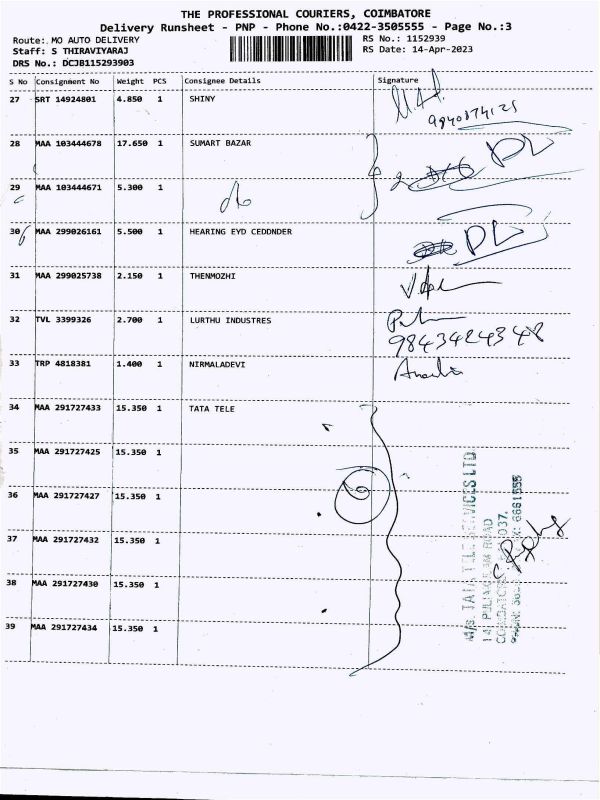 THE PROFESSIONAL COURIERS, COIMBATORE
Delivery Runsheet - PNP - Phone No.:0422-3505555 - Page No.:3
Route: MO AUTO DELIVERY
RS No.: 1152939
Staff: S THIRAVIYARAJ
RS Date: 14-Apr-2023
DRS No.: DCJB115293903
S No Consignment No Weight PCS Consignee Details Signature
27 SRT 14924801 4.850 1 SHINY
28 MAA 103444678 17.650 1 SUMART BAZAR
29 MAA 103444671 5.300 1 do 2
30 MAA 299026161 5.500 1 HEARING EYD CEDDNDER
31 MAA 299025738 2.150 1 THENMOZHI
32 TVL 3399326 2.700 1 LURTHU INDUSTRES
9843424348
33 TRP 4818381 1.400 1 NIRMALADEVI
34 MAA 291727433 15.350 1 TATA TELE
35 MAA 291727425 15.350 1
36 MAA 291727427 15.350 1 6
37 MAA 291727432 15.350 1
38 MAA 291727430 15.350 1
39 MAA 291727434 15.350 1
M/s. TATA TELE SERVICES LTD